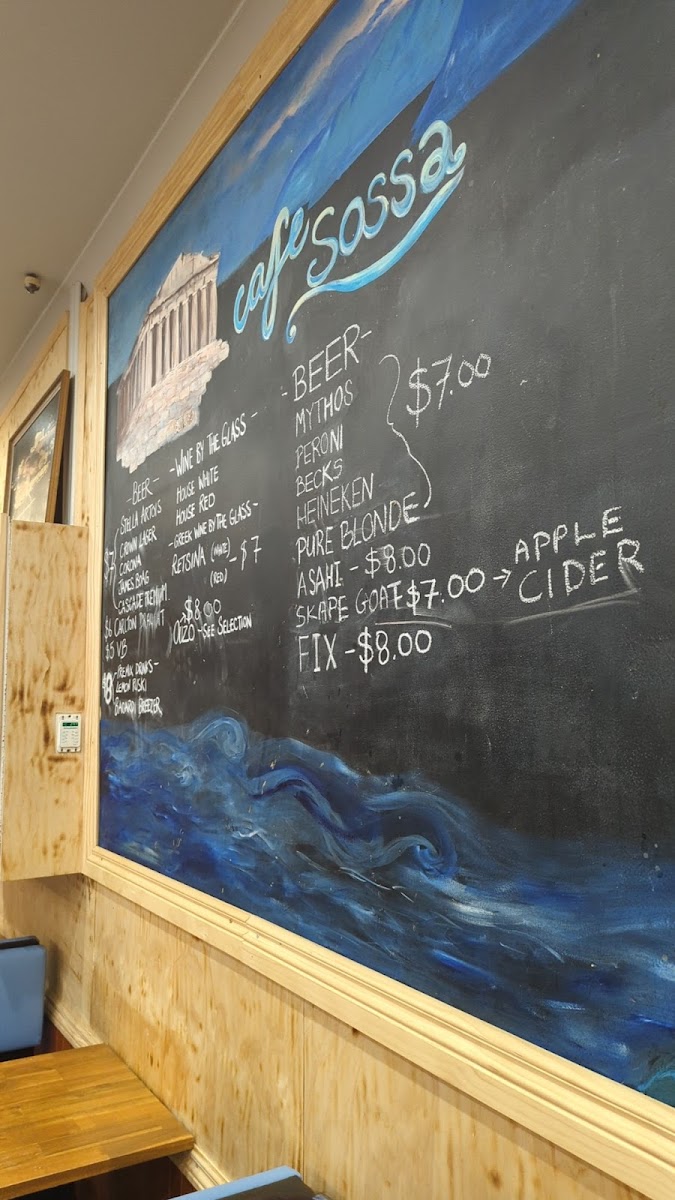 cafe sossa
-BEER-
STELLA ARTOIS
CROWN LAGER
CORONA
JAMES BOAG
CASCADE PREMIUM
$7
$6 CARLTON DRAUGHT
$5 VB
-PREMIX DRINKS-
LEMON RUSKI
BACARDI BREEZER
$8
-WINE BY THE GLASS-
HOUSE WHITE
HOUSE RED
-GREEK WINE BY THE GLASS-
RETSINA (WHITE) -$7
(RED)
$8.00
OUZO -SEE SELECTION
-BEER-
MYTHOS
PERONI
BECKS
HEINEKEN
PURE BLONDE
$7.00
ASAHI -$8.00
SKAPE GOAT $7.00 → APPLE CIDER
FIX -$8.00